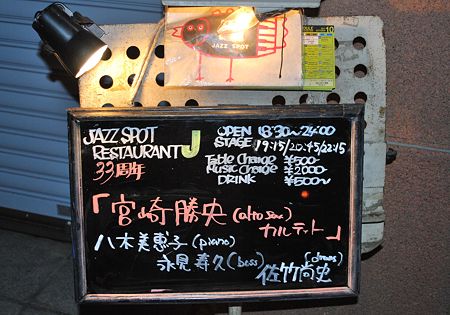 JAZZ SPOT
JAZZ SPOT
RESTAURANT J
33周年
OPEN 18:30~24:00
STAGE 19:15/20:45/22:15
Table Charge ¥500-
Music Charge ¥2000-
DRINK ¥500~
「宮崎勝央(alto sax)
カルテット」
八木美恵子(piano)
永見寿久(bass)
佐竹尚史(drums)
10